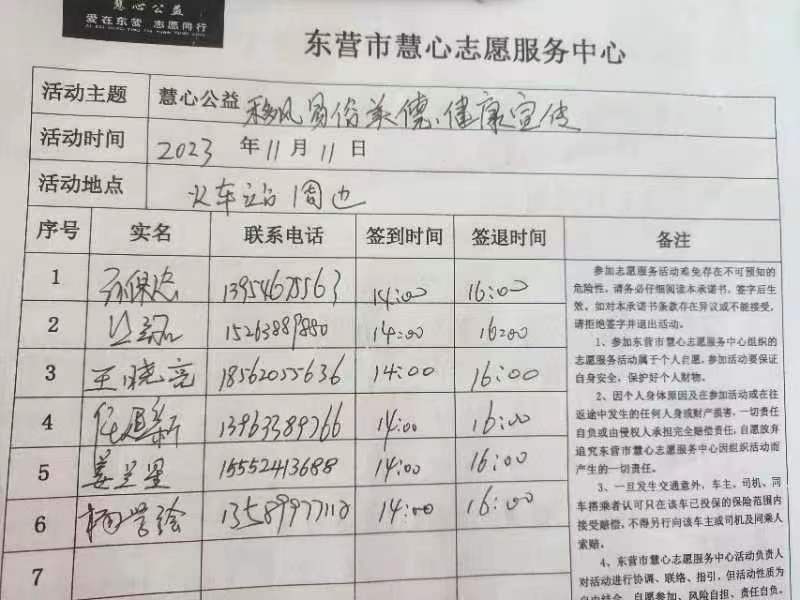 慧心公益
爱在东营 志愿同行
东营市慧心志愿服务中心
活动主题 慧心公益 移风易俗美德、健康宣传
活动时间 2023 年 11 月 11 日
活动地点 火车站周边
序号 实名 联系电话 签到时间 签退时间 备注
1 14:00 16:00
2 15263889880 14:00 16:00
3 王晓亮 18562055636 14:00 16:00
4 13963389766 14:00 16:00
5 姜兰星 15552413688 14:00 16:00
6 14:00 16:00
7
参加志愿服务活动难免存在不可预知的
危险性，请务必仔细阅读本承诺书，签字后生
效。如对本承诺书条款存在异议或不能接受，
请拒绝签字并退出活动。
1、参加东营市慧心志愿服务中心组织的
志愿服务活动属于个人自愿，参加活动要保证
自身安全，保护好个人财物。
2、因个人身体原因及在参加活动或在往
返途中发生的任何人身或财产损害，一切责任
自负或由侵权人承担完全赔偿责任，自愿放弃
追究东营市慧心志愿服务中心因组织活动而
产生的一切责任。
3、一旦发生交通意外，车主、司机、同
车搭乘者认可只在该车已投保的保险范围内
接受赔偿，不得另行向该车主或司机及同乘人
索赔。
4、东营市慧心志愿服务中心活动负责人
对活动进行协调、联络、指引，但活动性质为
自由结合、自愿参加、风险自担、责任自负。